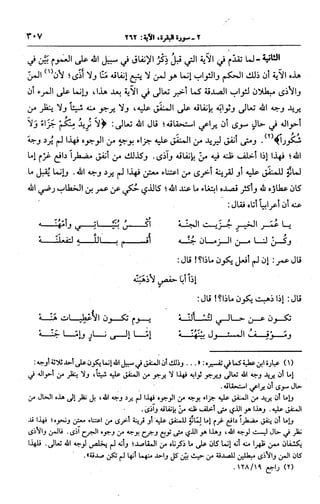 ٢ ـ سورة البقرة، الآية: ٢٦٢
٣٠٧
الثانية ـ لما تقدّم في الآية التي قبلُ ذكرُ الإنفاق في سبيل الله على العموم بيّن في
هذه الآية أن ذلك الحكم والثواب إنما هو لمن لا يتبع إنفاقه مَنّاً ولا أذى؛ لأن(١) المنّ
والأذى مبطلان لثواب الصدقة كما أخبر تعالى في الآية بعد هذا، وإنما على المرء أن
يريد وجه الله تعالى وثوابَه بإنفاقه على المنفَق عليه، ولا يرجو منه شيئاً ولا ينظر من
أحواله في حالٍ سوى أن يراعي استحقاقه؛ قال الله تعالى: ﴿لَا نُرِيدُ مِنكُمْ جَزَاءً وَلَا
شُكُورًا﴾(٢). ومتى أنفق ليريد من المنفَق عليه جزاء بوجهٍ من الوجوه فهذا لم يُرد وجه
الله؛ فهذا إذا أخلف ظنه فيه منّ بإنفاقه وآذى. وكذلك من أنفق مضطراً دافع غرم إما
لمانّةٍ للمنفَق عليه أو لقرينة أخرى من اعتناء معتنٍ فهذا لم يرد وجه الله. وإنما يُقبل ما
كان عطاؤه لله وأكثر قصده ابتغاء ما عند الله؛ كالذي حُكي عن عمر بن الخطاب رضي الله
عنه أن أعرابياً أتاه فقال:
يا عُمَر الخيرِ جُزيتَ الجنّهْ
أُكْسُ بُنَيّاتي وأُمّهُنّهْ
وكُنْ لنا من الزمان جُنّهْ
أُقسم بالله لتفعلنّهْ
قال عمر: إن لم أفعل يكون ماذا؟! قال:
إذاً أبا حفصٍ لأذهبنّهْ
قال: إذا ذهبتَ يكون ماذا؟! قال:
تكون عن حالي لتُسألنّهْ
يوم تكون الأُعطيات هَنّهْ
وموقفُ المسئول بينهُنّهْ
إمّا إلى نارٍ وإمّا جنّهْ
(١) عبارة ابن عطية كما في تفسيره: «... وذلك أن المنفق في سبيل الله إنما يكون على أحد ثلاثة أوجه:
إما أن يريد وجه الله تعالى ويرجو ثوابه فهذا لا يرجو من المنفق عليه شيئاً، ولا ينظر من أحواله في
حال سوى أن يراعي استحقاقه.
وإما أن يريد من المنفق عليه جزاء بوجه من الوجوه فهذا لم يرد وجه الله، بل نظر إلى هذه الحال من
المنفق عليه. وهذا هو الذي متى أخلف ظنه منّ بإنفاقه وآذى.
وإما أن ينفق مضطراً دافع غرم إما لمانّة للمنفق عليه أو قرينة أخرى من اعتناء معتن ونحوه؛ فهذا قد
نظر في حال ليست لوجه الله، وهذا هو الذي متى توبع وجرح بوجه من وجوه الجرح آذى. فالمنّ والأذى
يكشفان ممن ظهرا منه أنه إنما كان على ما ذكرناه من المقاصد؛ وأنه لم يخلص لوجه الله تعالى. فلهذا
كان المنّ والأذى مبطلين للصدقة من حيث بيّن كل واحد منهما أنها لم تكن صدقة».
(٢) راجع ١٢٨/١٩.